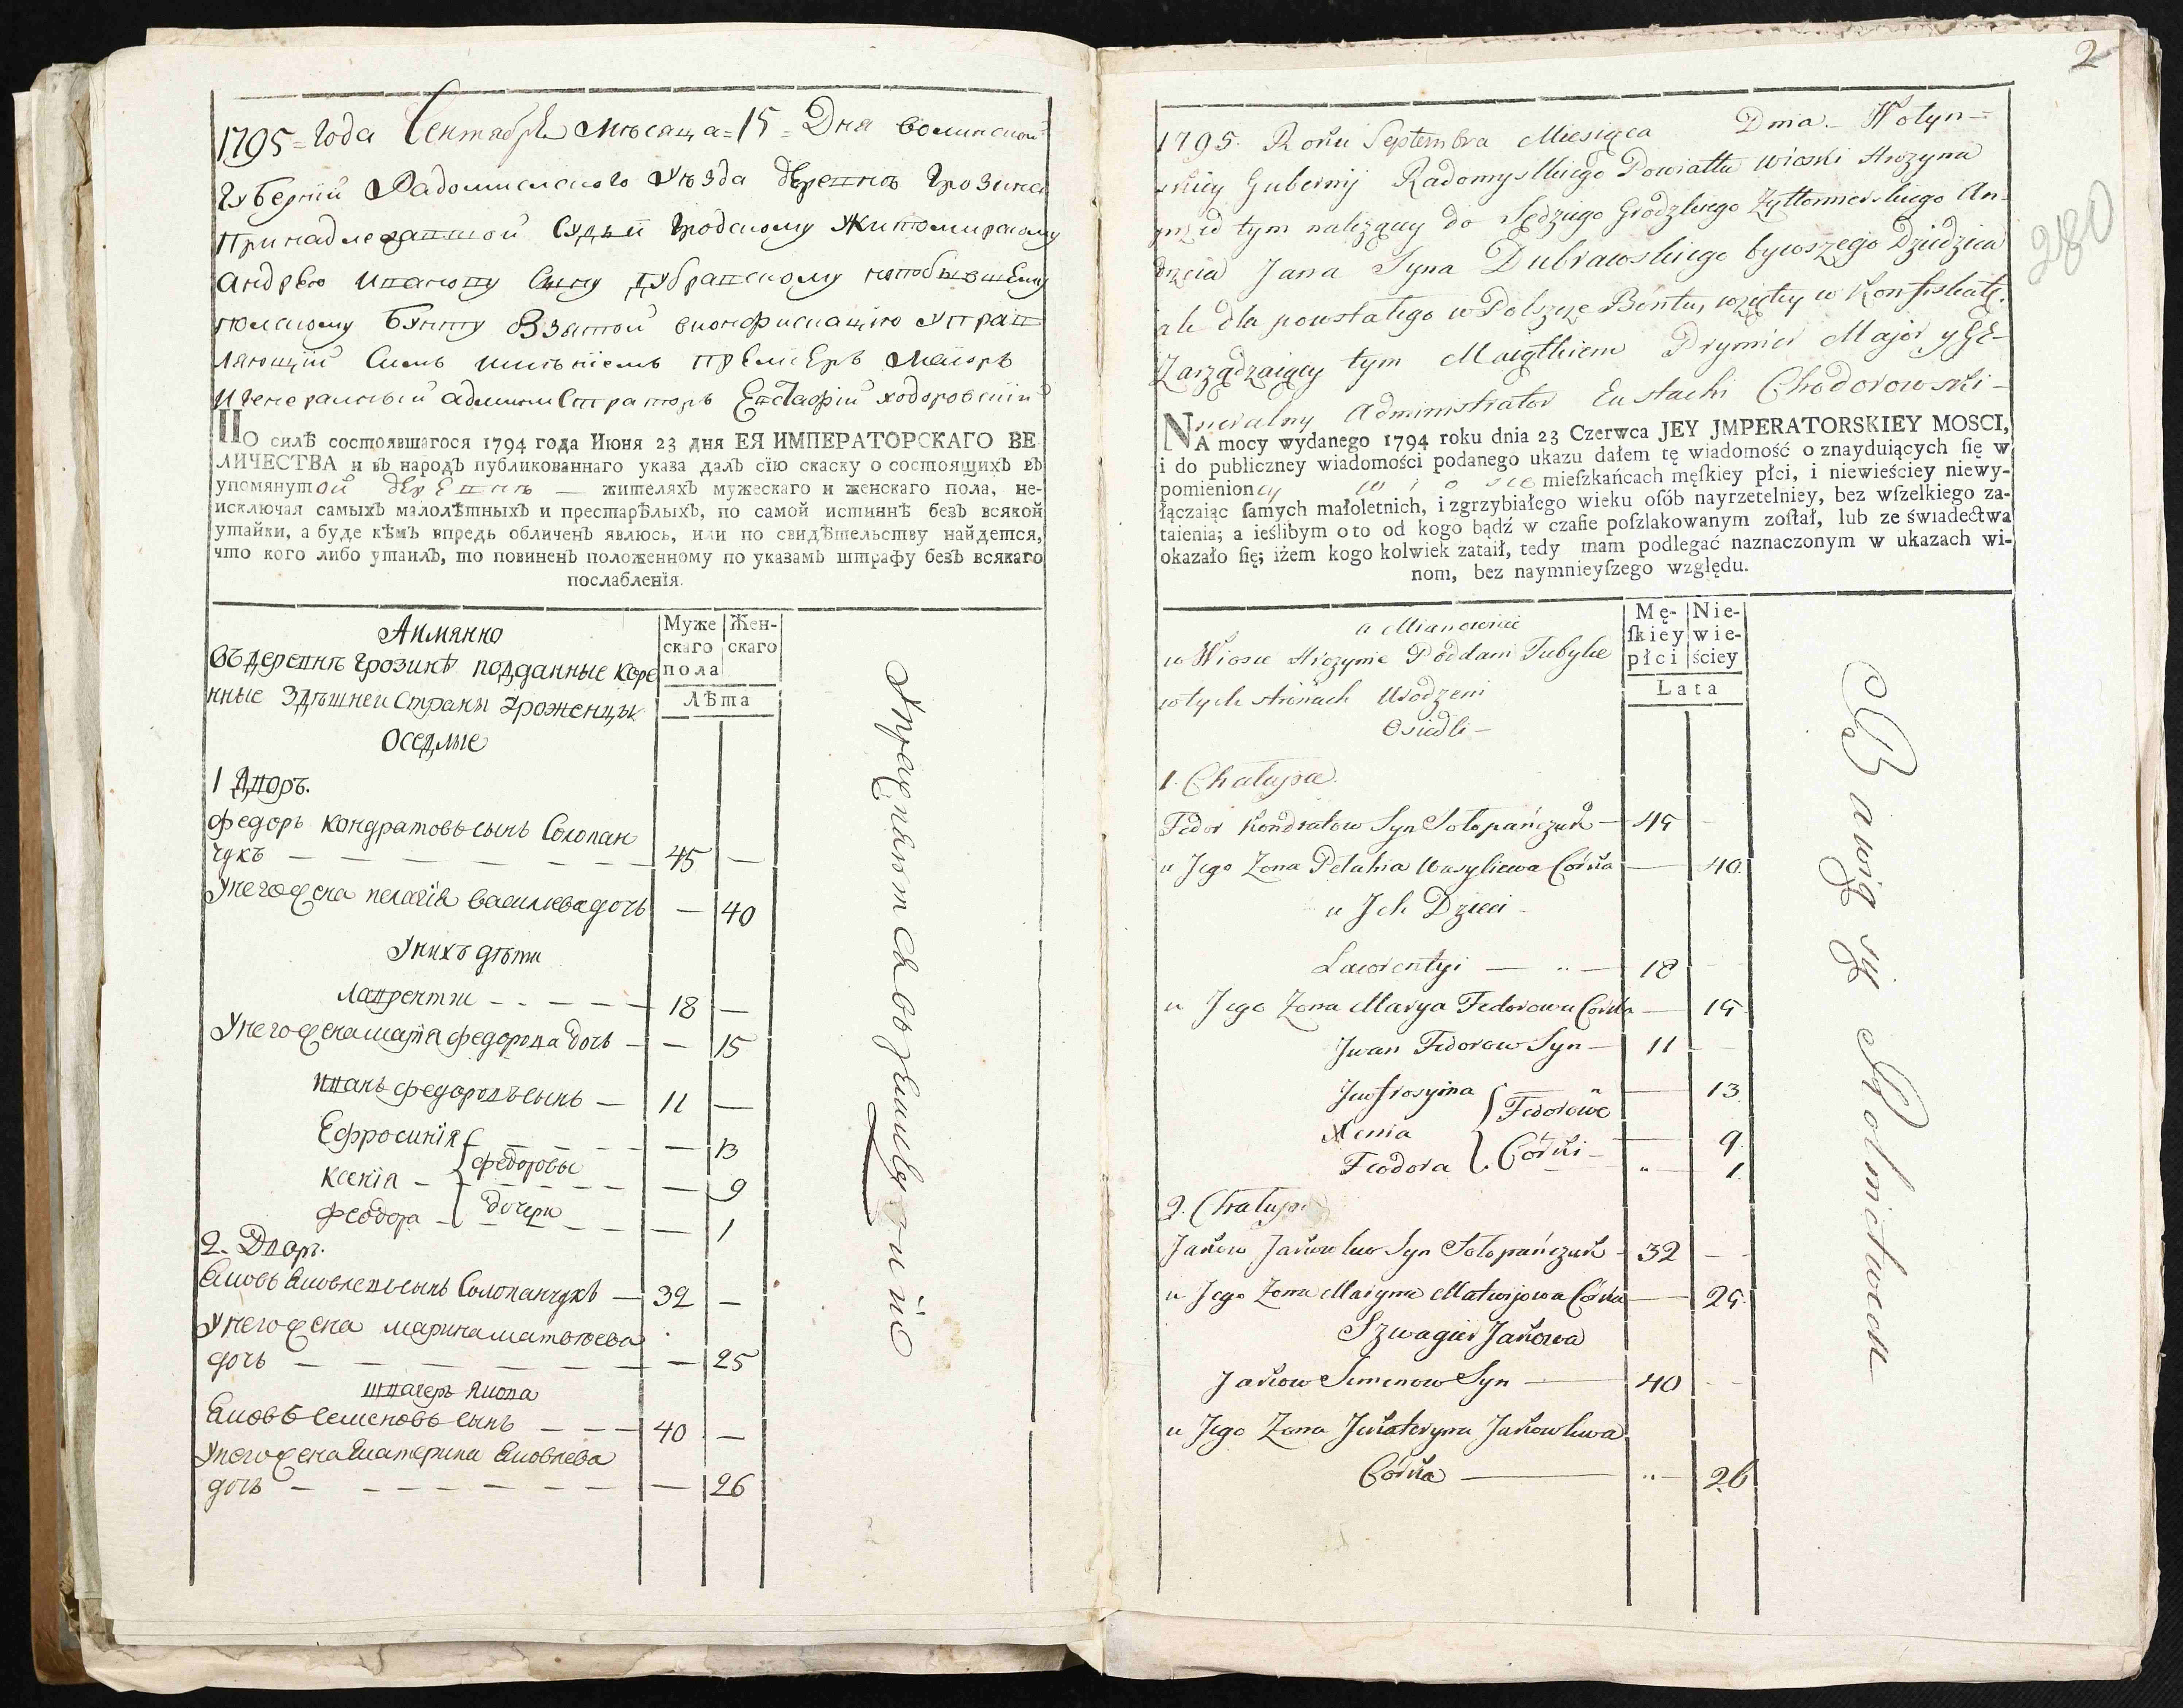 1795 = Года Сентября мѣсяца = 15 = Дня волинской
Губернїи Радомислского уѣзда деревнѣ Грозинѣ
Принадлежавшой Судьи Гродскому Житомирскому
Андрѣю Иванову Сыну Дубравскому
полскому Бунту Взятой вконфискацию управ
ляющий Симъ имѣнїемъ премиеръ маиоръ
И генералный администраторъ Евстафий ходоровский
ПО силѣ состоявшагося 1794 года Июня 23 дня ЕЯ ИМПЕРАТОРСКАГО ВЕ
ЛИЧЕСТВА и въ народъ публикованнаго указа далъ сїю скаску о состоящихъ въ
упомянутой деревнѣ — жителяхъ мужескаго и женскаго пола, не-
исключая самыхъ малолѣтныхъ и престарѣлыхъ, по самой истиннѣ безъ всякой
утайки, а буде кѣмъ впредь обличенъ явлюсь, или по свидѣтельству найдется,
что кого либо утаилъ, то повиненъ положенному по указамъ штрафу безъ всякаго
послабленїя.
Аимянно
Въ деревнѣ Грозинѣ подданные коре
нные здѣшней Страны уроженцы
Оседлые
Муже
скаго
пола
Жен-
скаго
Лѣта
1 Дворъ.
Федоръ Кондратовъ сынъ Солопан
чукъ — 45 —
У него жена пелагїя василева дочь — 40
У нихъ дѣти
Лаврентии — 18 —
У него жена марїя федорова дочь — 15
иванъ федоровъ сынъ — 11 —
Ефросинїя — 13
Ксенїя — 9
феодора — 1
федоровы
дочери
2. Дворъ.
Яковъ Яковлевъ сынъ Солопанчукъ — 32 —
У него жена марина матвѣева
дочь — 25
швагеръ Якова
Яковъ Семеновъ сынъ — 40 —
У него жена Екатерина Яковлева
дочь — 26
2
280
1795. Roku Septembra Miesiąca Dnia — Wołyn=
skiey Gubernij Radomyslkiego Powiattu wioski Hrozyna
przed tym należącey do Sędziego Grodzkiego Żyttomierskiego An-
drzeia Jana Syna Dubrawskiego bywszego Dziedzica
ale dla powstałego w Polszcze Bontu, wziętey w Konfiskatę.
Zarządzaiący tym Maiątkiem Prymier Major y Ge-
neralny Administrator Eustachi Chodorowski —
NA mocy wydanego 1794 roku dnia 23 Czerwca JEY JMPERATORSKIEY MOSCI,
i do publiczney wiadomości podanego ukazu dałem tę wiadomość o znayduiących ſię w
pomienioney wiosce mieſzkańcach męſkiey płci, i niewieściey niewy-
łączaiąc ſamych małoletnich, i zgrzybiałego wieku oſób nayrzetelniey, bez wſzelkiego za-
taienia; a ieślibym oto od kogo bądź w czaſie poſzlakowanym zoſtał, lub ze świadectwa
okazało ſię; iżem kogo kolwiek zataił, tedy mam podlegać naznaczonym w ukazach wi-
nom, bez naymnieyſzego względu.
a Mianowicie
w Wiosce Hrozynie Poddani Tubylce
w tych stronach Urodzeni
Osiedli —
Mę-
ſkiey
płci
Nie-
wie-
ściey
Lata
1. Chałupa.
Fedor Kondratow Syn Sołopańczuk — 45 —
u Jego Żona Pelahia Wasyliewa Córka — 40.
u Jch Dzieci —
Lawrentyi — 18 —
u Jego Żona Marya Fedorowa Corka — 15
Jwan Fedorow Syn — 11 —
Jewfrosyina — 13.
Xenia — 9.
Feodora — 1.
Fedorowe
Córki —
2. Chałupa
Jakow Jakowlew Syn Sołopańczuk — 32 —
u Jego Żona Maryna Matwijowa Córka — 25.
Szwagier Jakowa
Jakow Semenow Syn — 40 —
u Jego Żona Jekateryna Jakowlewa
Córka — 26
Bawią się Rolnictwem